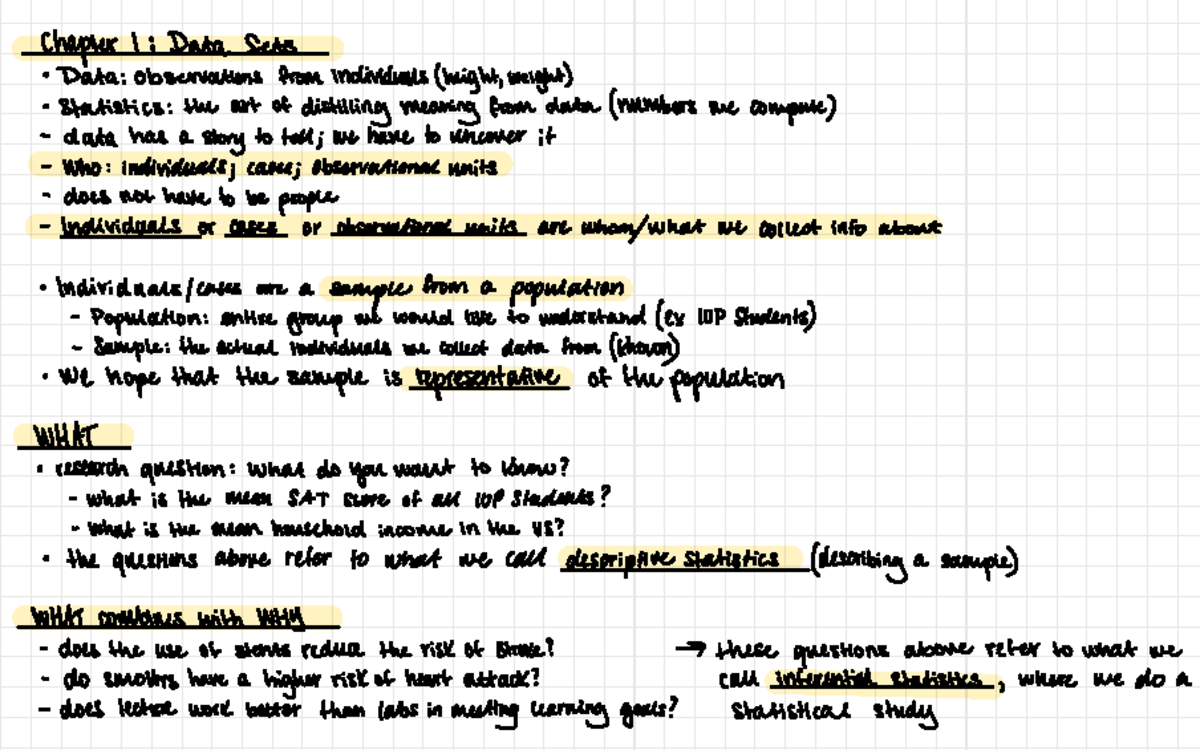 Chapter 1: Data Sets
• Data: observations from individuals (height, weight)
• Statistics: the art of distilling meaning from data (numbers we compute)
- data has a story to tell; we have to uncover it
- Who: individuals; cases; observational units
- does not have to be people
- Individuals or cases or observational units are whom/what we collect info about
• Individuals/cases are a sample from a population
- Population: entire group we would like to understand (ex IUP Students)
- Sample: the actual individuals we collect data from (known)
• We hope that the sample is representative of the population
WHAT
• research question: what do you want to know?
- what is the mean SAT score of all IUP Students?
- what is the mean household income in the US?
• the questions above refer to what we call descriptive statistics (describing a sample)
WHAT combines with WHY
- does the use of stents reduce the risk of stroke?
- do smokers have a higher risk of heart attack?
- does lecture work better than labs in meeting learning goals?
→ these questions above refer to what we
call inferential statistics, where we do a
statistical study